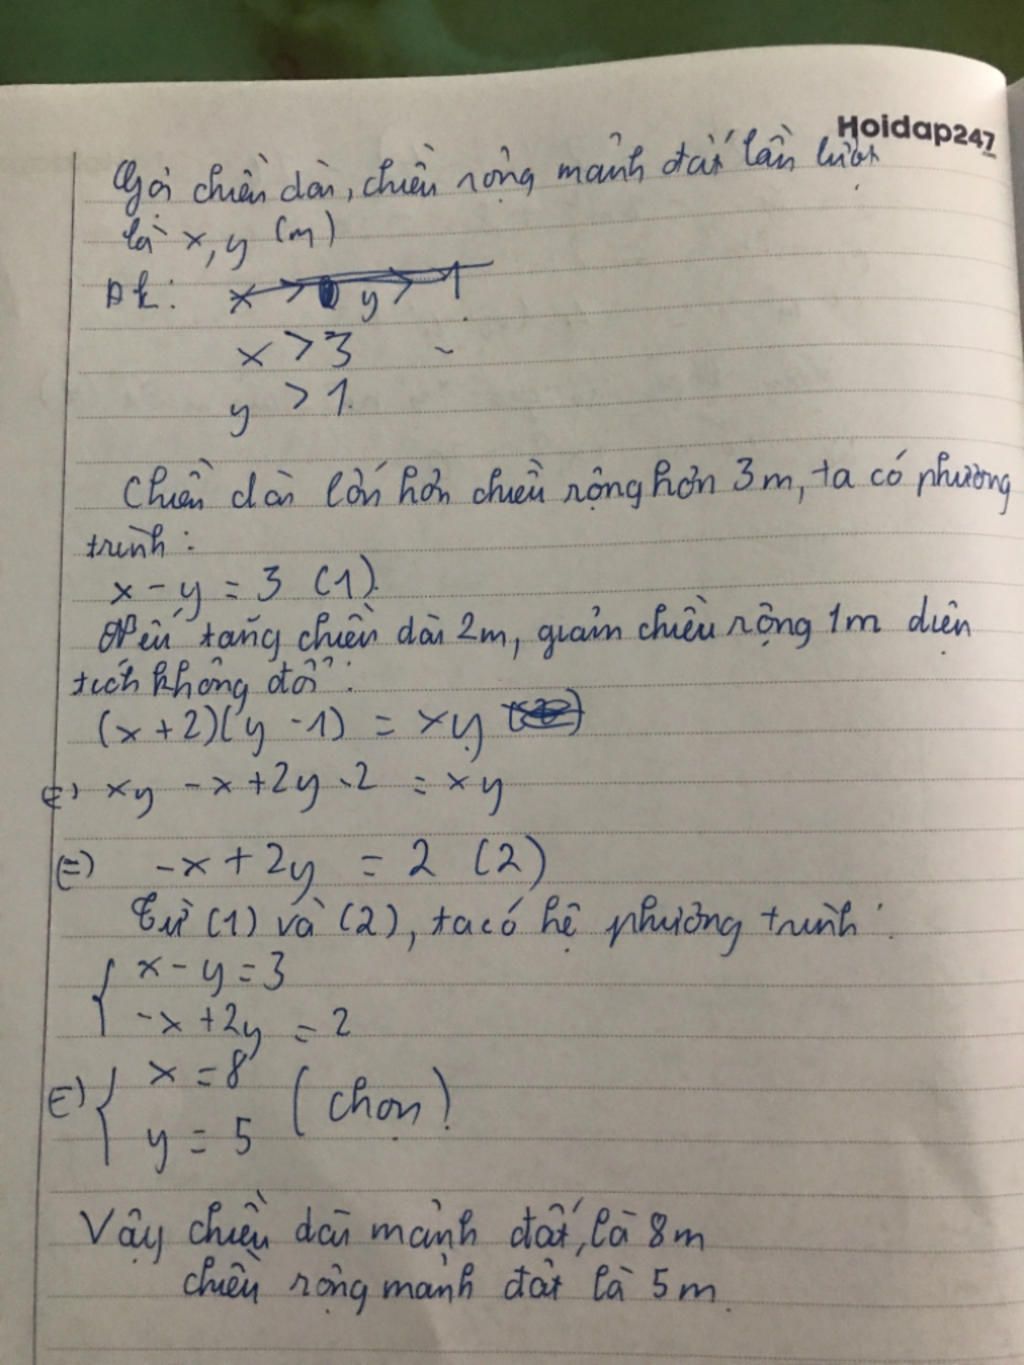 Hoidap247
Gọi chiều dài, chiều rộng mảnh đất lần lượt
là x, y (m)
Đk: x > 0 y > 1
x > 3
y > 1.
Chiều dài lớn hơn chiều rộng hơn 3m, ta có phương
trình:
x - y = 3 (1).
Nếu tăng chiều dài 2m, giảm chiều rộng 1m diện
tích không đổi:
(x + 2)(y - 1) = xy
(=) xy - x + 2y - 2 = xy
(=) -x + 2y = 2 (2)
Từ (1) và (2), ta có hệ phương trình:
{ x - y = 3
-x + 2y = 2
(=) { x = 8
y = 5 (chọn)
Vậy chiều dài mảnh đất là 8m
chiều rộng mảnh đất là 5m.